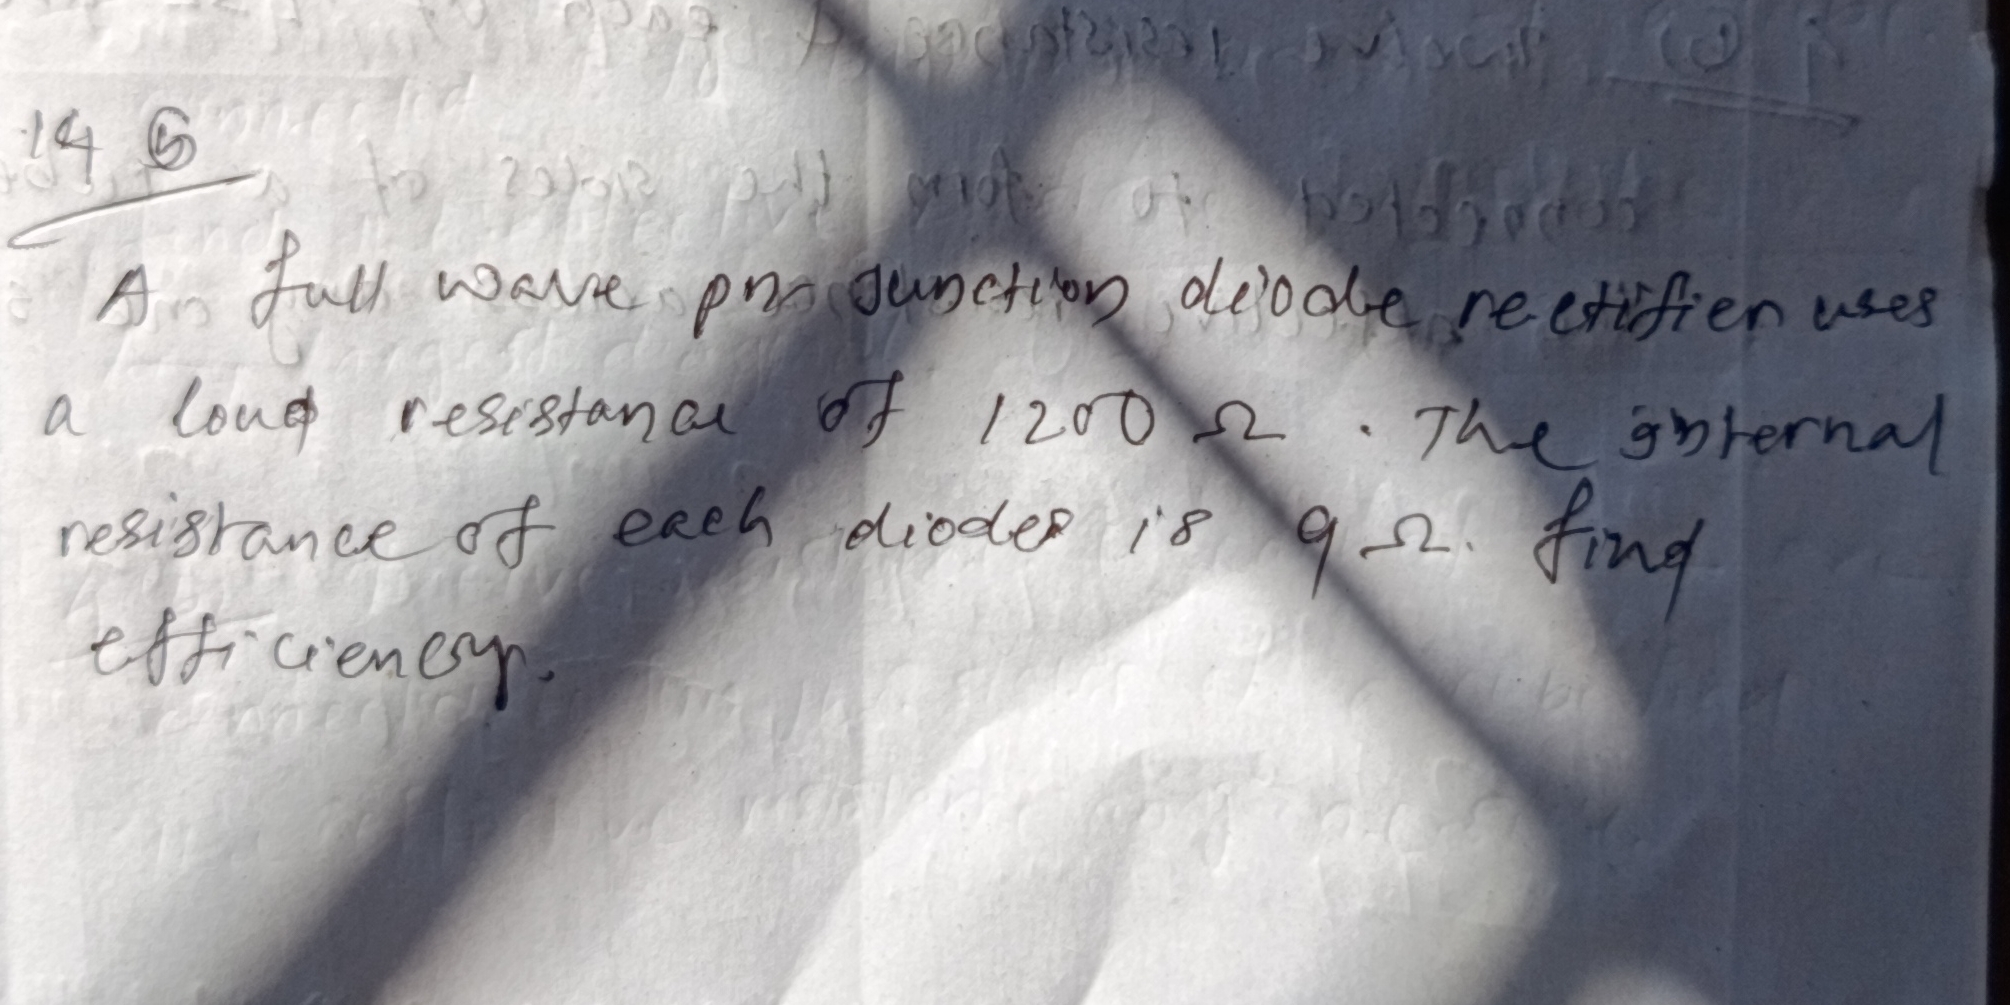 14 b
A full wave pn junction diode rectifier uses
a load resistance of 1200 Ω. The internal
resistance of each diodes is 9 Ω. find
efficiency.